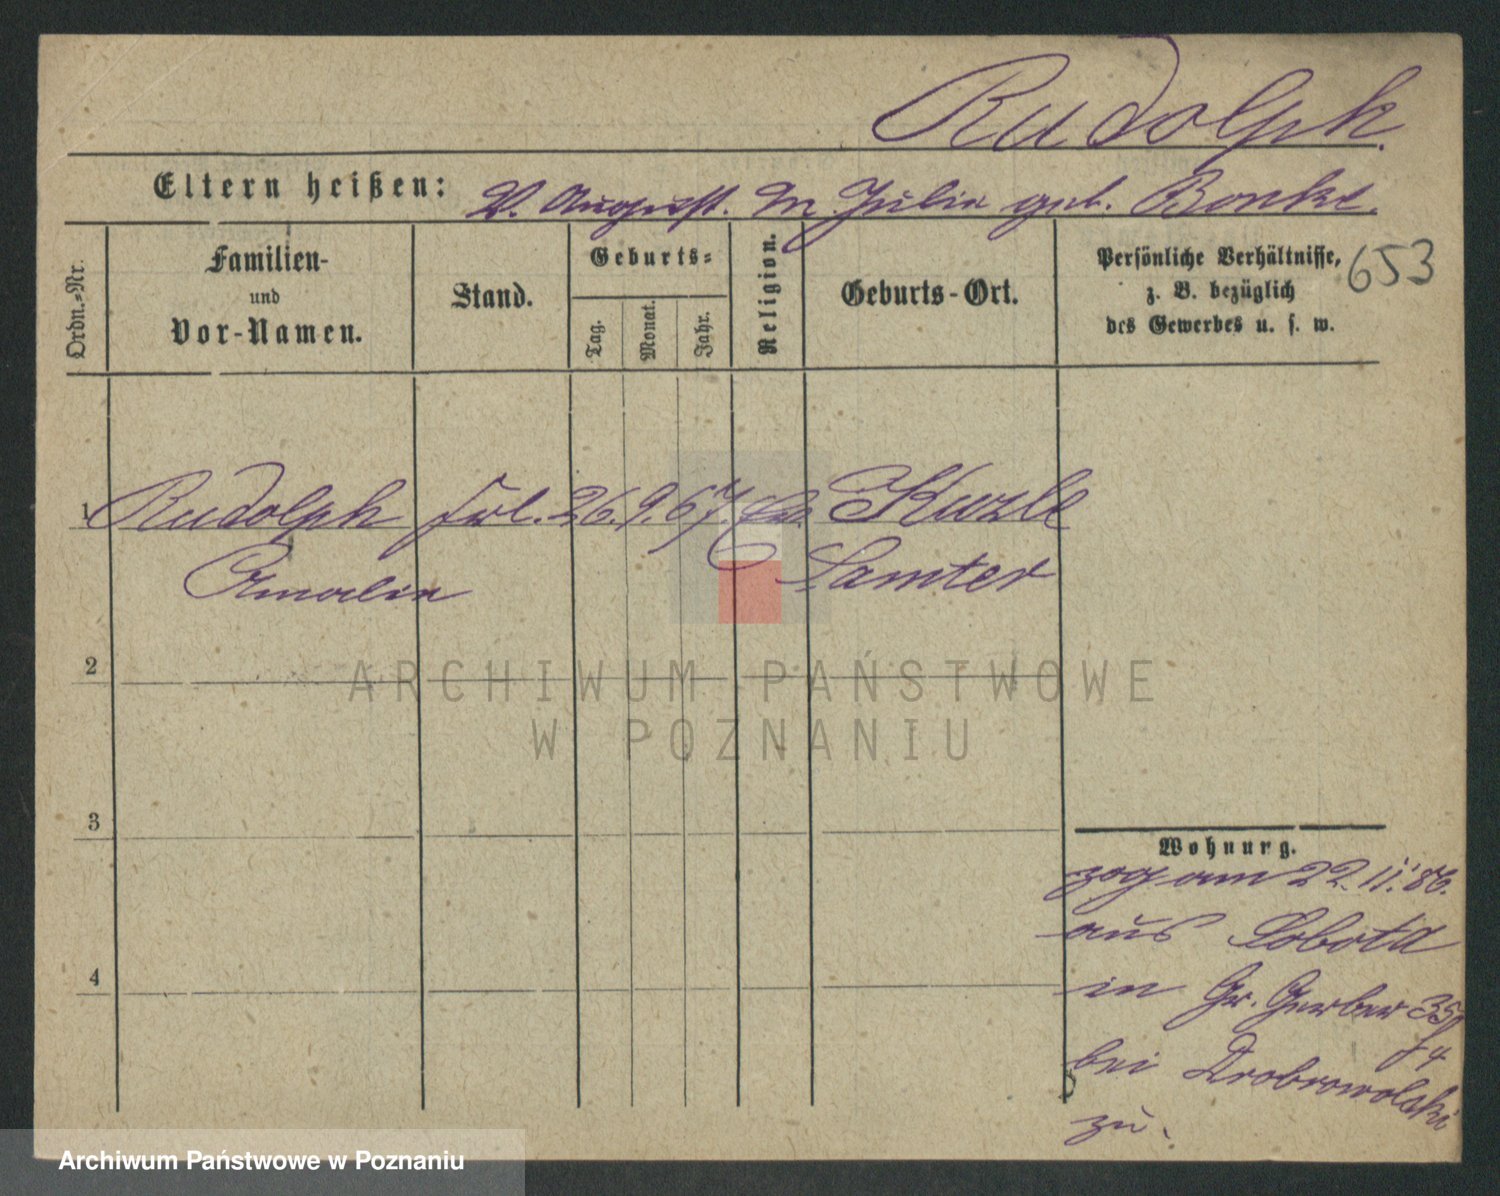 Rudolph.
Eltern heißen: V. August. M Julie geb. Bonke.
Ordn.=Nr.
Familien-
und
Vor-Namen.
Stand.
Geburts=
Tag.
Monat.
Jahr.
Religion.
Geburts-Ort.
Persönliche Verhältnisse,
z. B. bezüglich
des Gewerbes u. s. w.
653
1 Rudolph Frl. 26. 9. 67. Ev.
Amalie Samter
2
ARCHIWUM PAŃSTWOWE
W POZNANIU
3
4
Wohnung.
zog am 22. 11. 86.
aus Sobota
in Gr. Gerber 35
bei
zu.
Archiwum Państwowe w Poznaniu